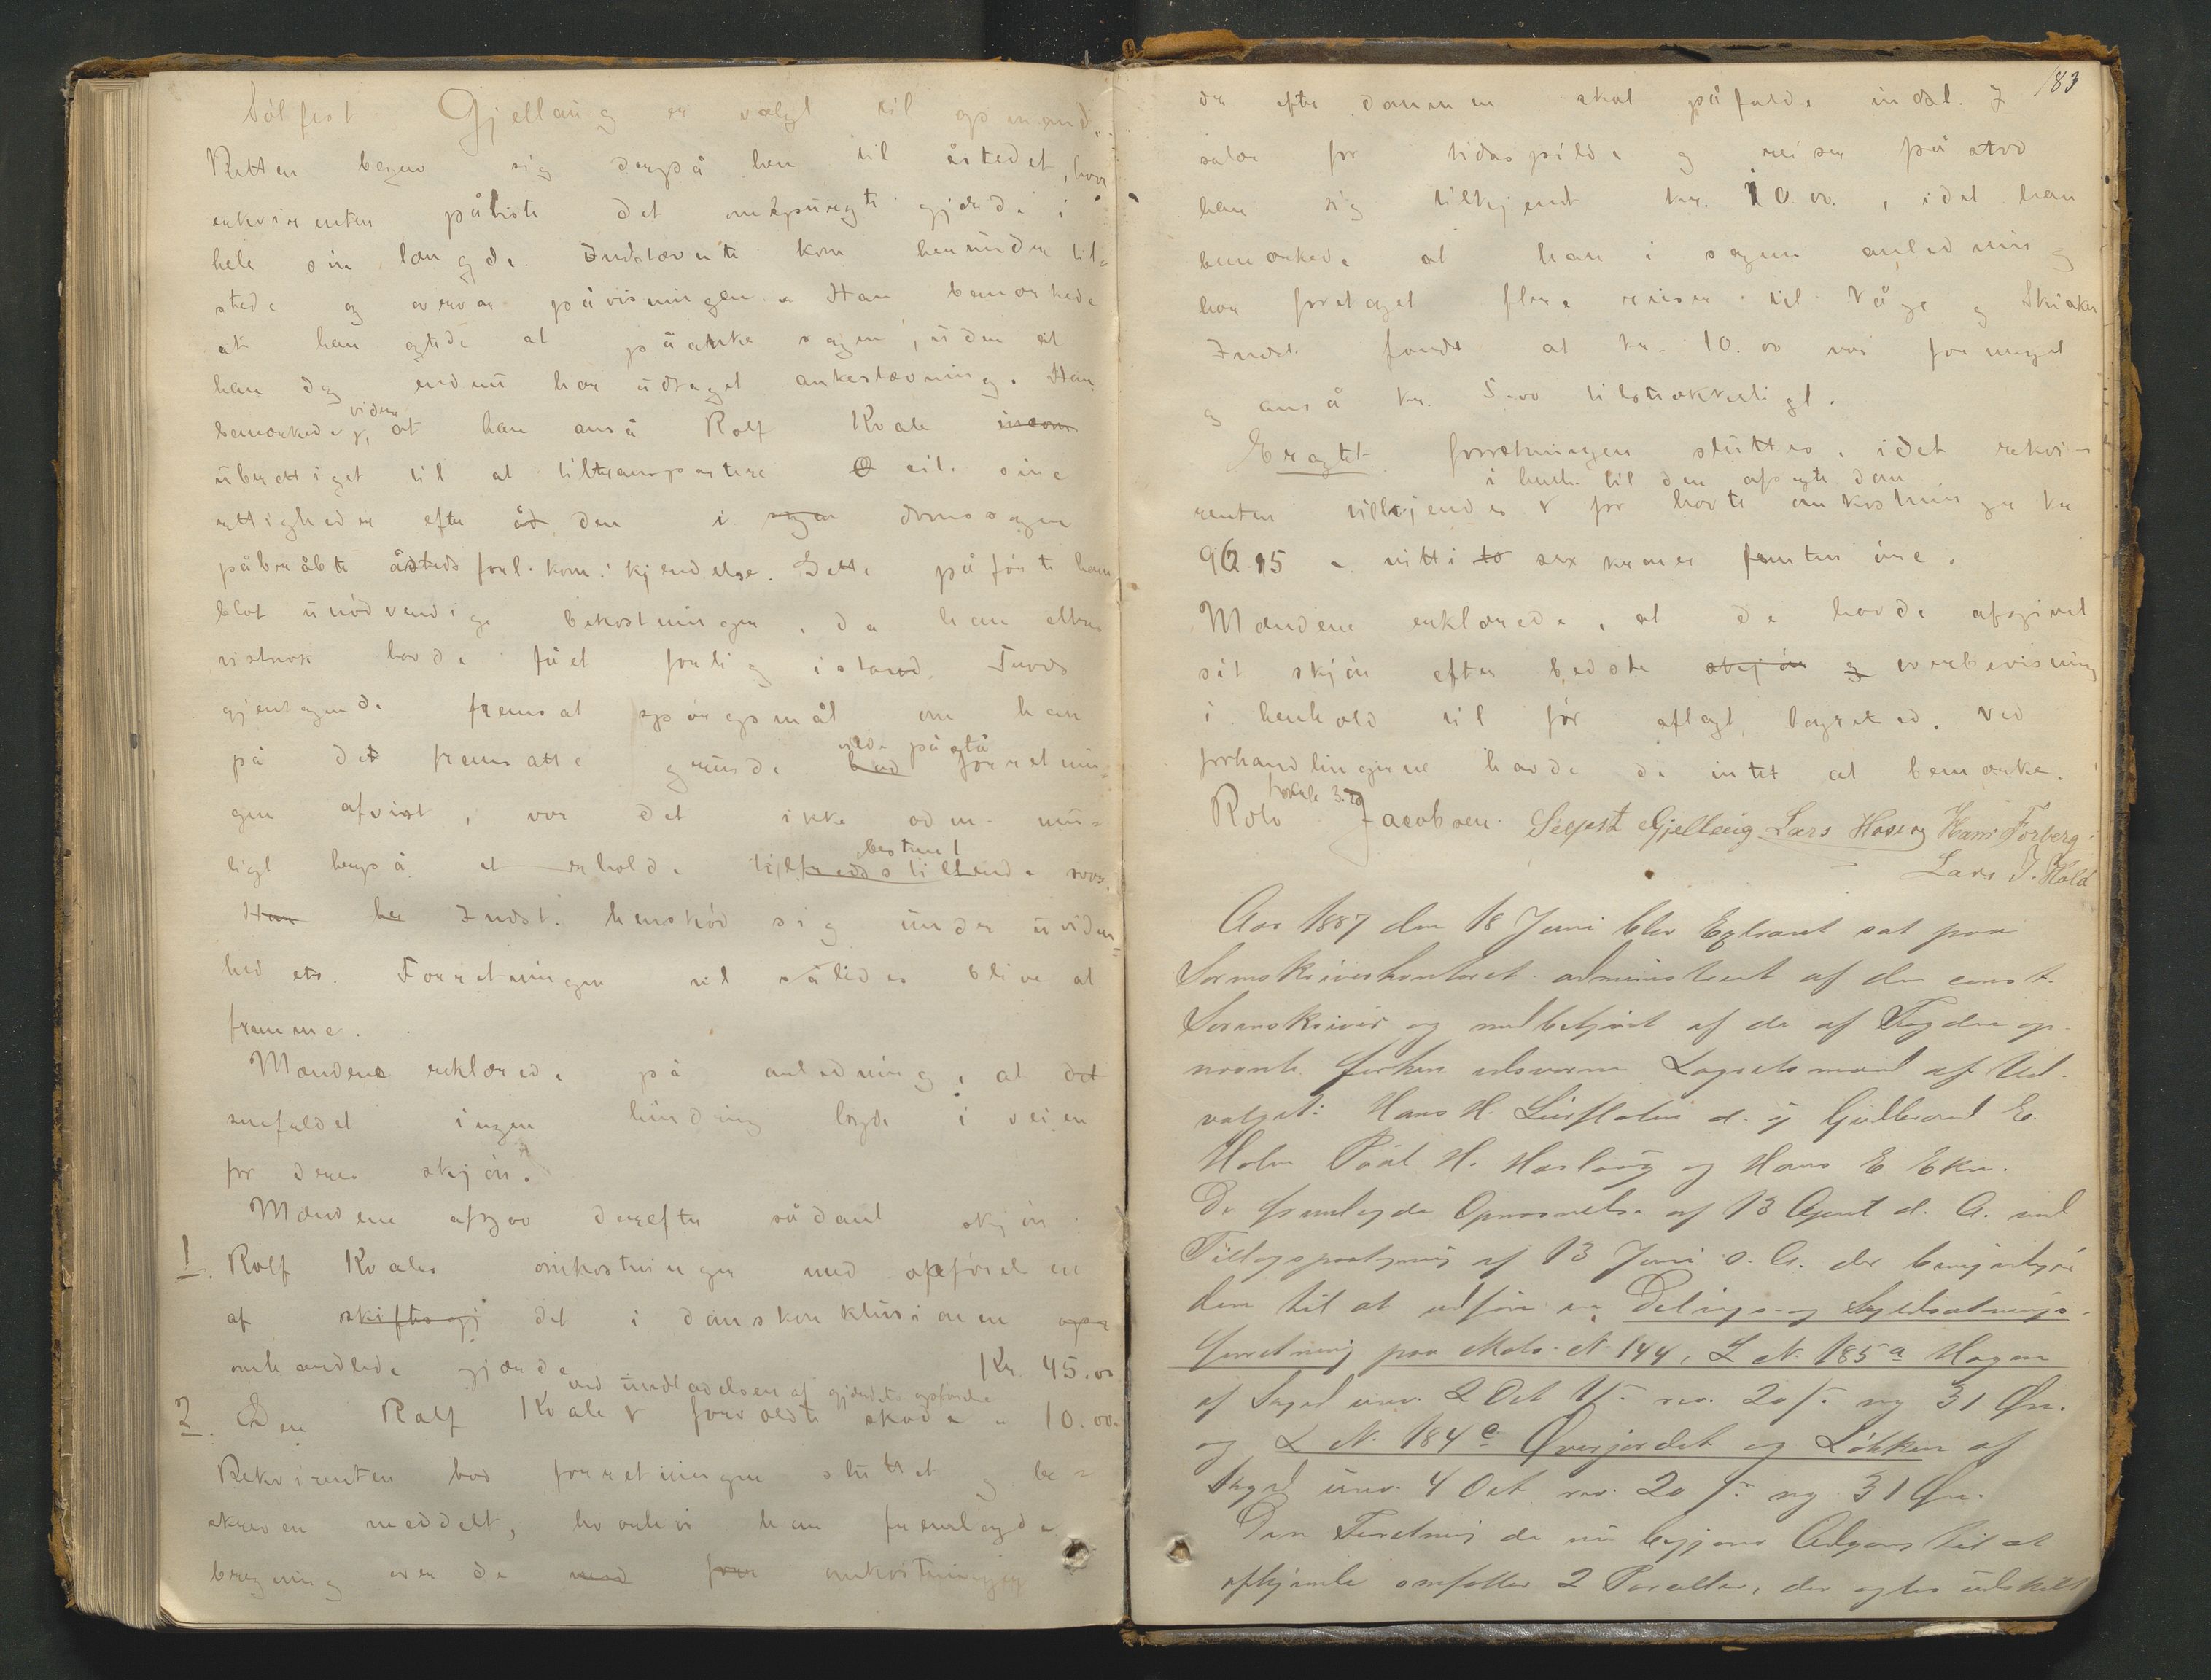 Sölfest Gjellaug er valgt til opmand.
Retten begav sig derpå hen til åstedet, hvor
rekvirenten påviste det omspurgte gjærde i
hele sin længde. Indstævnte kom herunder til-
stede og overvar påvisningen. Han bemærkede
at han agtede at påanke sagen, uden at
han dog endnu har udtaget ankestævning. Han
bemærkede videre, at han anså Rolf Kvale
uberettiget til at tiltransportere eit. sine
rettigheder efter den i domssagen
påberåbte åsteds forl. kom. kjendelse. Dette påførte ham
blot unödvendige bekostninger, da han ellers
vistnok havde fået forlig istand. Tvods
gjentagende fremsat spörgsmål om han
på det fremsatte grunde vilde påstå forretnin-
gen afvist, var det ikke adm. mu-
ligt herpå at erholde bestemt svar.
Indst. henskød sig under uviden-
hed etc. Forretningen vil således blive at
fremme.
Mændene erklærede på anledning, at det
snefaldet ingen hindring lagde i veien
for deres skjön.
Mændene afgav derefter sådant skjön:
1. Rolf Kvales omkostninger med opförelsen
af det i domskonklusionen
omhandlede gjærde Kr. 45.00
2. Den Rolf Kvale ved undladelsen af gjærdets opförelse forvoldte skade " 10.00
Rekvirenten bad forretningen sluttet og be-
skreven meddelt, hvorhos han fremlagde
bregning over de omkostninger
183
der efter dommen skal påfalde indst. I
salær for tidsspilde og reiser påstod
han sig tilkjendt kr. 10.00, idet han
bemærkede at han i sagens anledning
har foretaget flere reiser til Våge og Skiaker
Indst. fandt at kr. 10.00 var for meget
og anså kr. 5.00 tilstrækkeligt.
Eragtet forretningen sluttes, idet rekvi-
renten tilkjendes i henh. til den afsagte dom for havte omkostninger kr
96.15 - nitti sex kroner femten öre.
Mændene erklærede, at de havde afgivet
sit skjön efter bedste overbevisning
i henhold til för aflagt lagretted. Ved
forhandlingerne havde de intet at bemærke.
Rolv Kvale Jacobsen. Sölfest Gjellaug Lars Hosøy Hans Forberg
Lars J. Hold
Aar 1887 den 18 Juni blev Extraret sat paa
Sorenskriverkontoret administreret af den const.
Sorenskriver og medbetjent af de af Fogden op-
nævnte forhen edsvorne Lagretsmænd af Ud-
valget: Hans H. Lier d. y Gulbrand E.
Holm Paal H. Haslaug og Hans E Ekre.
De fremlagde Opnævnelse af 13 April d. A. med
Tillægspaategning af 13 Juni s. A. der bemyndiger
dem til at udföre en Delings- og Skyldsætnings-
forretning paa Matr. N. 144, L N. 185a Hagen
af Skyld urev. 2 Ort 4 s rev. 20 s ny 31 Øre.
og L N. 184e Øverjordet og Løkken af
Skyld urev. 4 Ort rev. 20 s ny 31 Øre.
Den Forretning de nu begjære Adgang til at
afhjemle omfatter 2 Parceller, der agtes udskilt